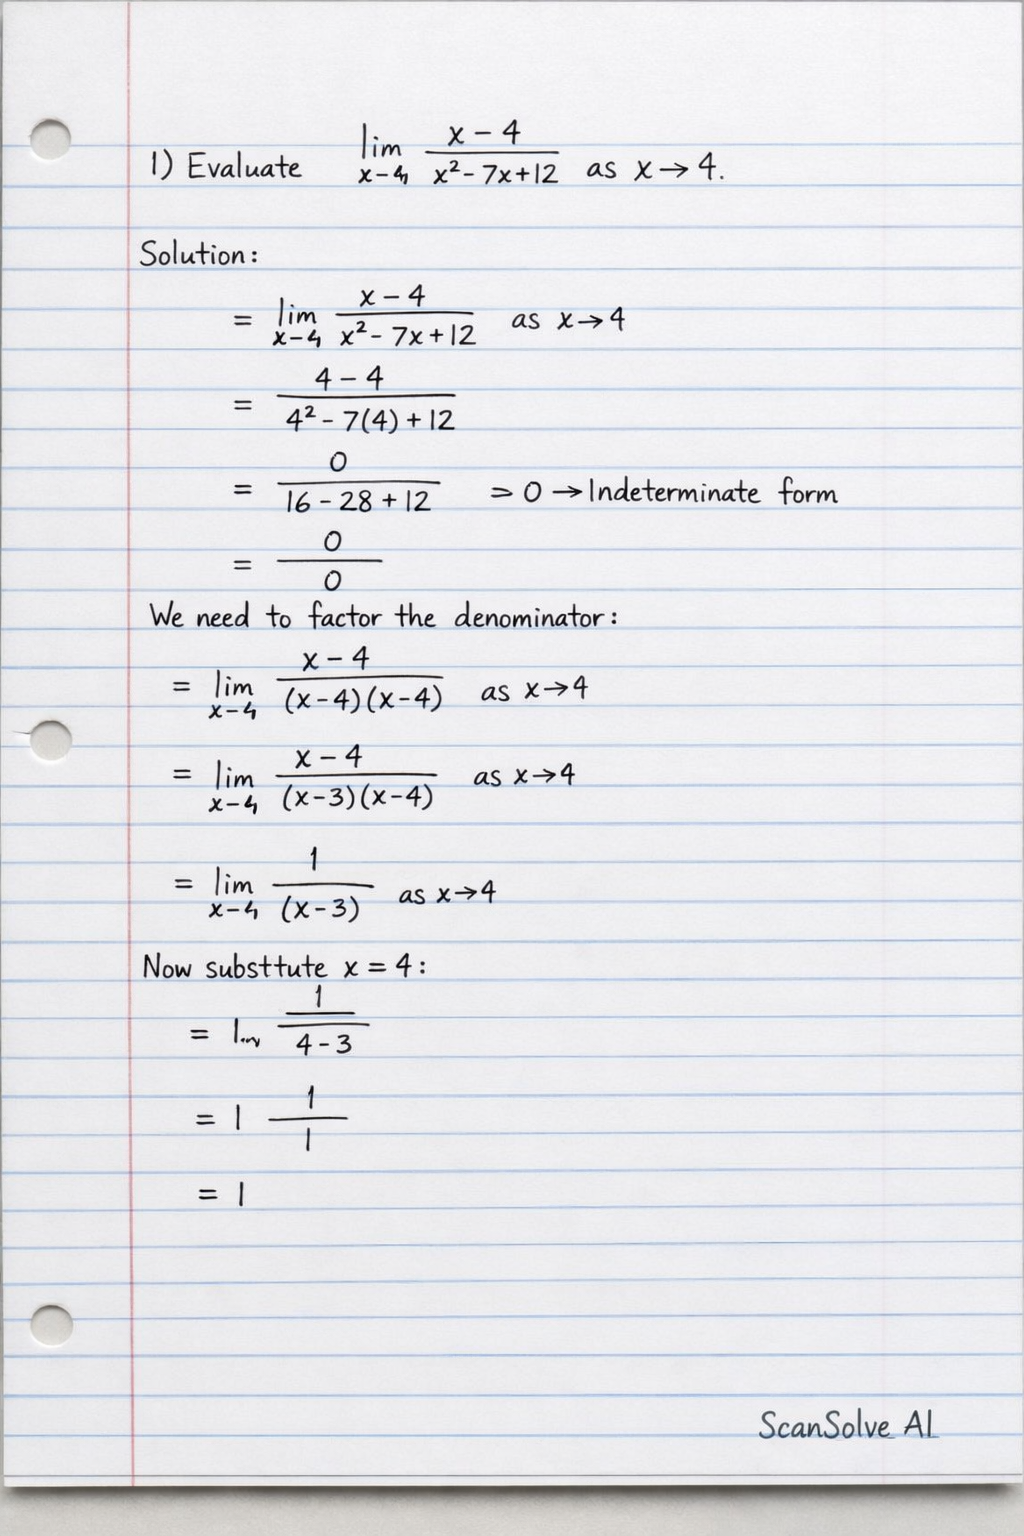 1) Evaluate lim x-4 (x - 4)/(x² - 7x+12) as x → 4.
Solution:
= lim x-4 (x - 4)/(x² - 7x+12) as x→4
= (4 - 4)/(4² - 7(4) + 12)
= 0/(16 - 28 + 12) = 0 → Indeterminate form
= 0/0
We need to factor the denominator:
= lim x-4 (x - 4)/((x-4)(x-4)) as x→4
= lim x-4 (x - 4)/((x-3)(x-4)) as x→4
= lim x-4 1/(x-3) as x→4
Now substtute x = 4:
= 1/(4 - 3)
= 1 1/1
= 1
ScanSolve AI